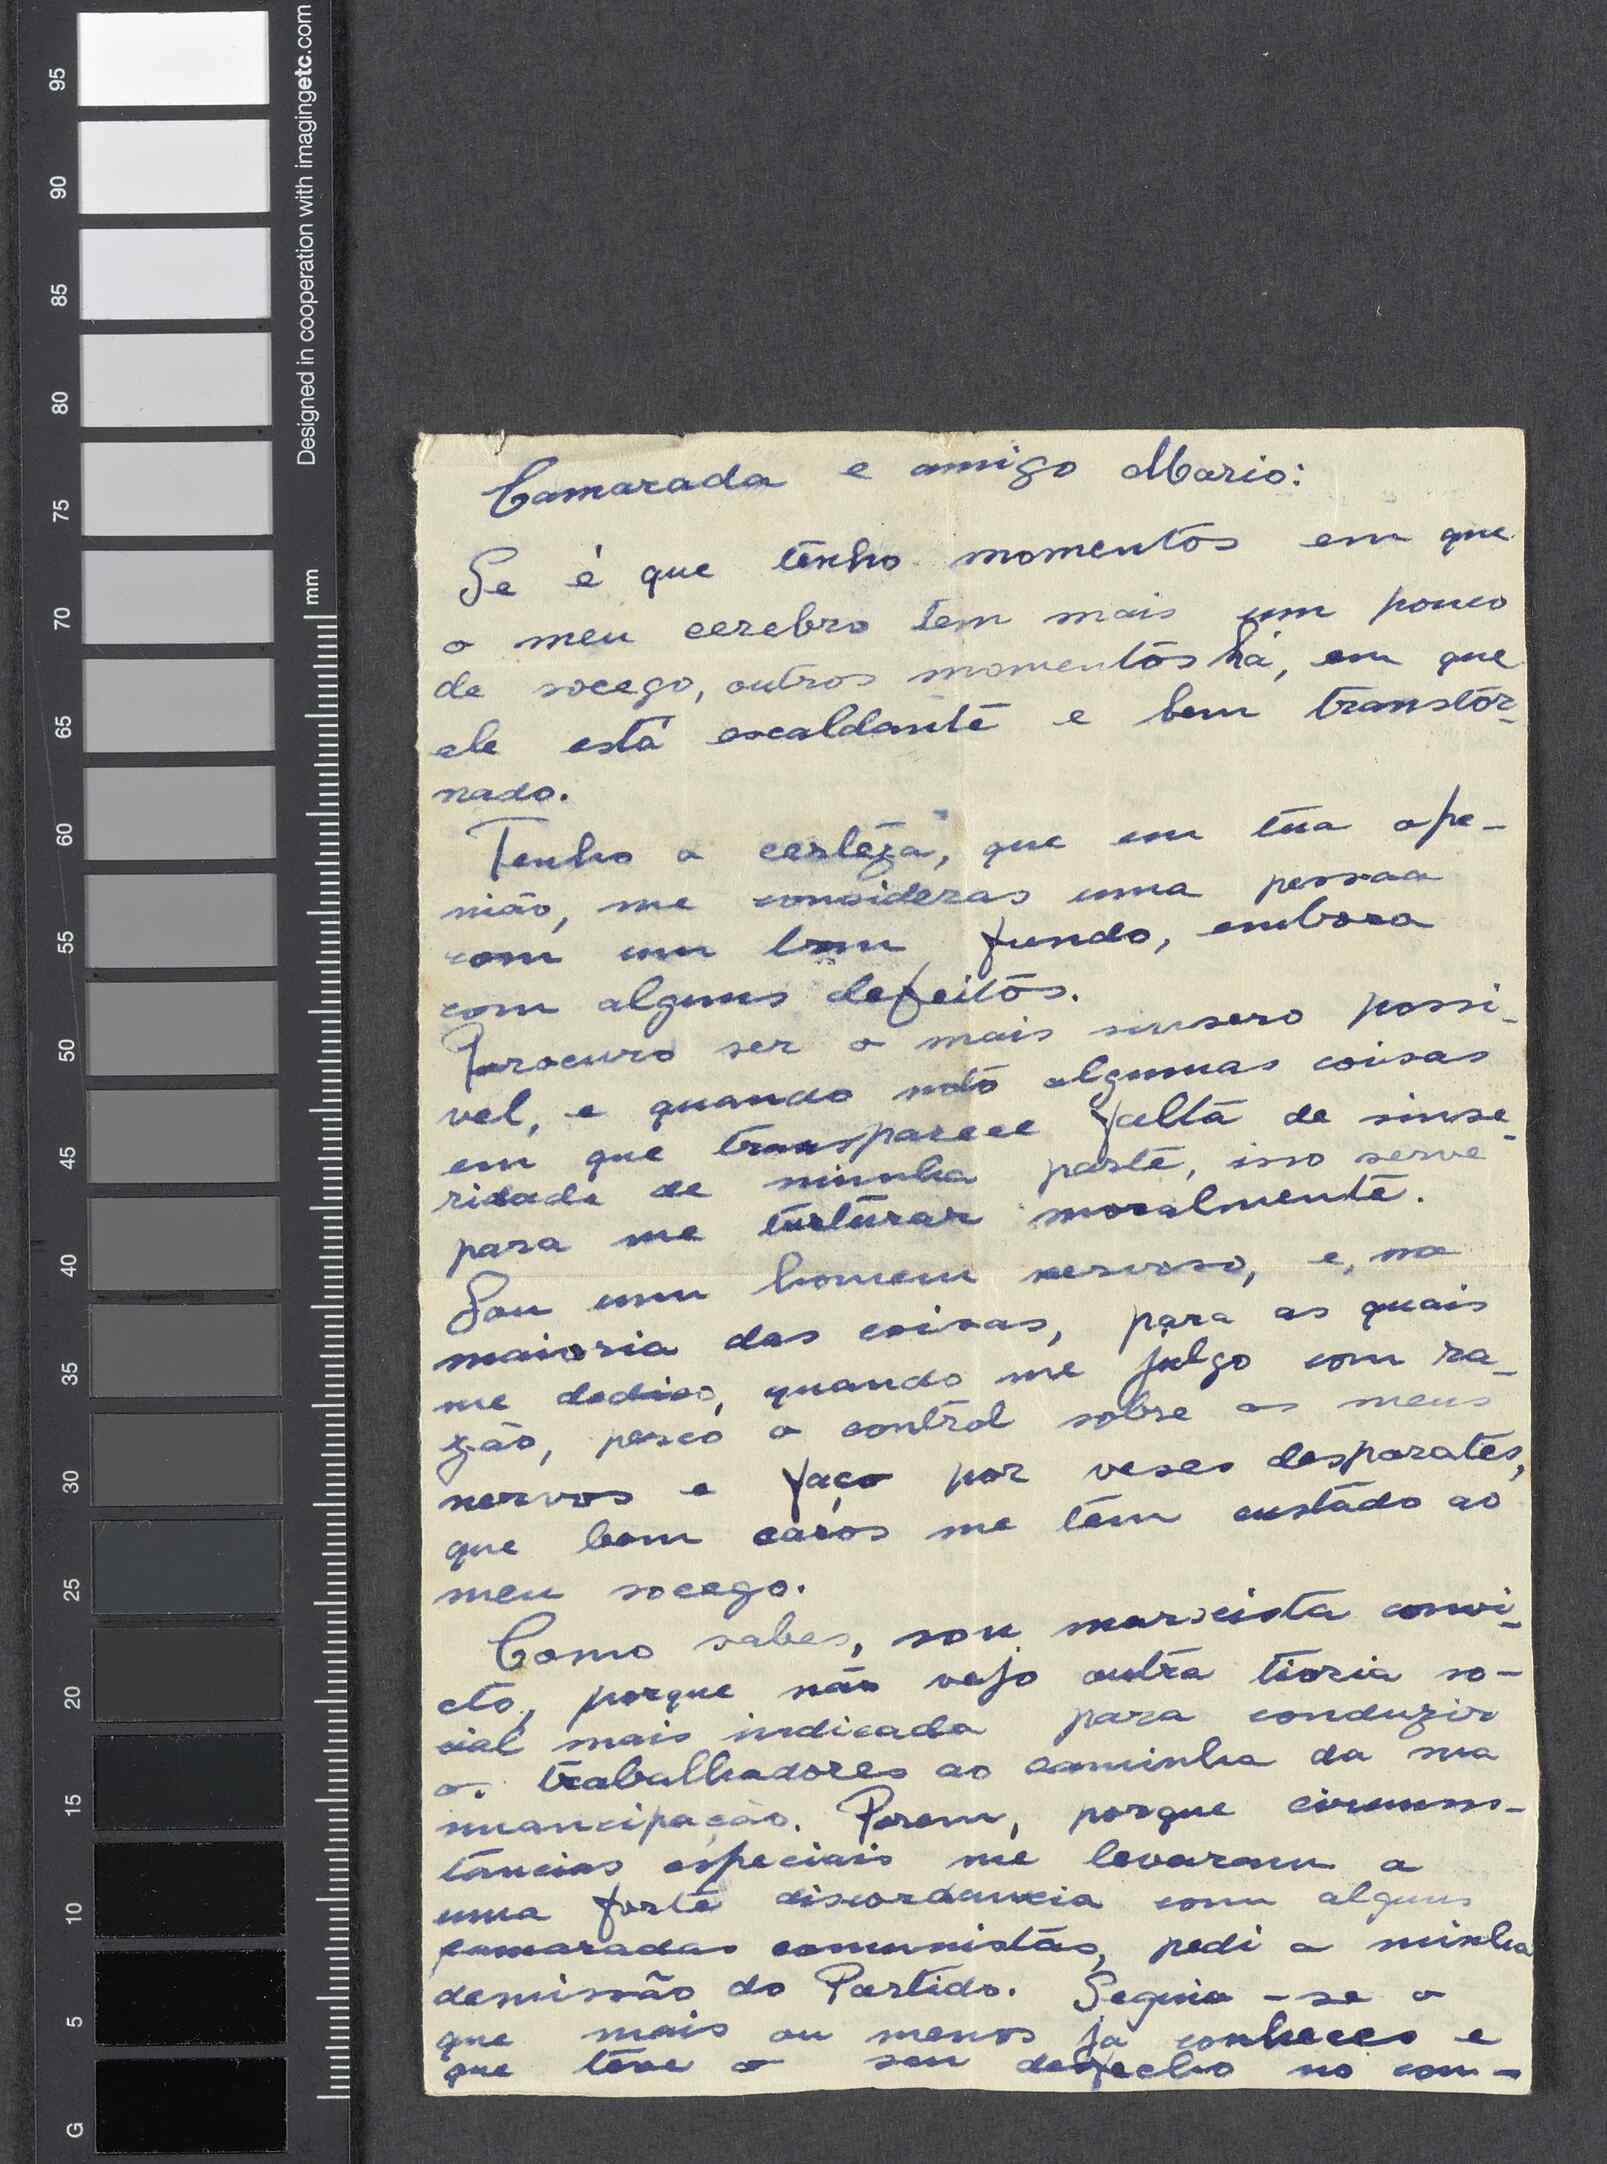 Designed in cooperation with imagingetc.com
mm
95
90
85
80
75
70
65
60
55
50
45
40
35
30
25
20
15
10
5
G
Camarada e amigo Mario:
Se é que tenho momentos em que
o meu cerebro tem mais um pouco
de socego, outros momentos há, em que
ele está escaldante e bem transtor-
nado.
Tenho a certeza, que em tua ope-
nião, me consideras uma pessoa
com um bom fundo, embora
com alguns defeitos.
Procuro ser o mais sinsero possi-
vel, e quando noto algumas coisas
em que transparece falta de sinse-
ridade de minha parte, isso serve
para me turturar moralmente.
Sou um homem nervoso, e, na
maioria das coisas, para as quais
me dedico, quando me julgo com ra-
zão, perco o contrôl sobre os meus
nervos e faço por veses desparates,
que bem caros me têm custado ao
meu socego.
Como sabes, sou marxista convi-
cto, porque não vejo outra tioria so-
cial mais indicada para conduzir
os trabalhadores ao caminho da sua
imancipação. Porem, porque circuns-
tancias especiais me levaram a
uma forte discordancia com alguns
camaradas comunistas, pedi a minha
demissão do Partido. Seguiu-se o
que mais ou menos já conheces e
que teve o seu desfecho no com-